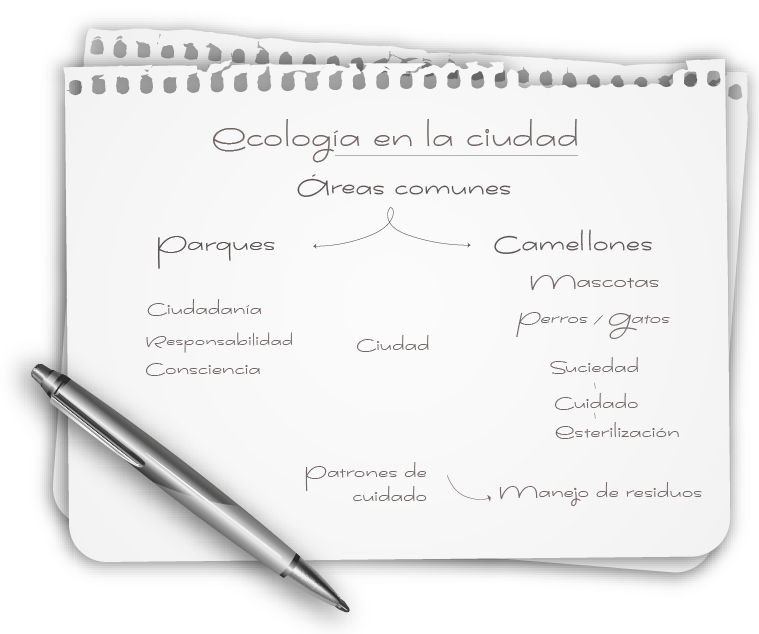 Ecología en la ciudad
Áreas comunes
Parques
Camellones
Mascotas
Perros / Gatos
Ciudadanía
Responsabilidad
Consciencia
Ciudad
Suciedad
Cuidado
Esterilización
Patrones de
cuidado
Manejo de residuos